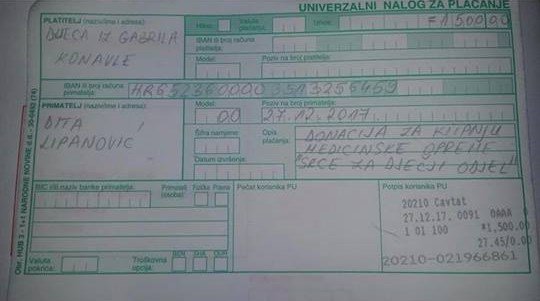 UNIVERZALNI NALOG ZA PLAĆANJE
PLATITELJ (naziv/ime i adresa):
Hitno:
Valuta plaćanja:
Iznos:
=1500,00
DJECA IZ GABRILA
KONAVLE
IBAN ili broj računa platitelja:
Model:
Poziv na broj platitelja:
IBAN ili broj računa primatelja:
PRIMATELJ (naziv/ime i adresa):
Model:
Poziv na broj primatelja:
00
27.12.2017
DITA
LIPANOVIĆ
Šifra namjene:
Opis plaćanja:
DONACIJA ZA
MEDICINSKE OPREME
"SRCE ZA DJEČJI ODJEL"
Datum izvršenja:
BIC i/ili naziv banke primatelja:
Primatelj (osoba):
Fizička
Pravna
Pečat korisnika PU
Potpis korisnika PU
20210 Cavtat
27.12.17. 0091 DAAA 0
1 01 100 *1,500.00
27.45/0.00
20210-021966861
Valuta pokrića:
Troškovna opcija:
BEN
SHA
OUR
Obr. HUB 3 - 1+1 NARODNE NOVINE d.d.